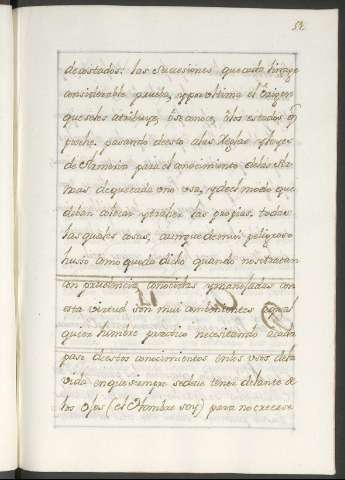 52
decostados: las sucesiones que cada linage
considerable prueba, y por ultimo el origen
que seles atribuye, ô se anoce, â los estados qe
poséhe. pasando de esta alas Reglas y Leyes
de Armeria para el conocimiento de las Ar-
mas de que cada uno usa, y del modo que
deban colocar y traher las propias. todas
las quales cosas, aunque de mui peligroso
husso como queda dicho quando no se tratan
con prudencia conocidas y manejadas con
esta virtud son mui convenientes a qual
quier hombre practico necesitando a cada
paso de estos conocimientos enlos usos dela
vida en que siempre se debe tener delante de
los Ojos (el Hombre soy) para no crecerse